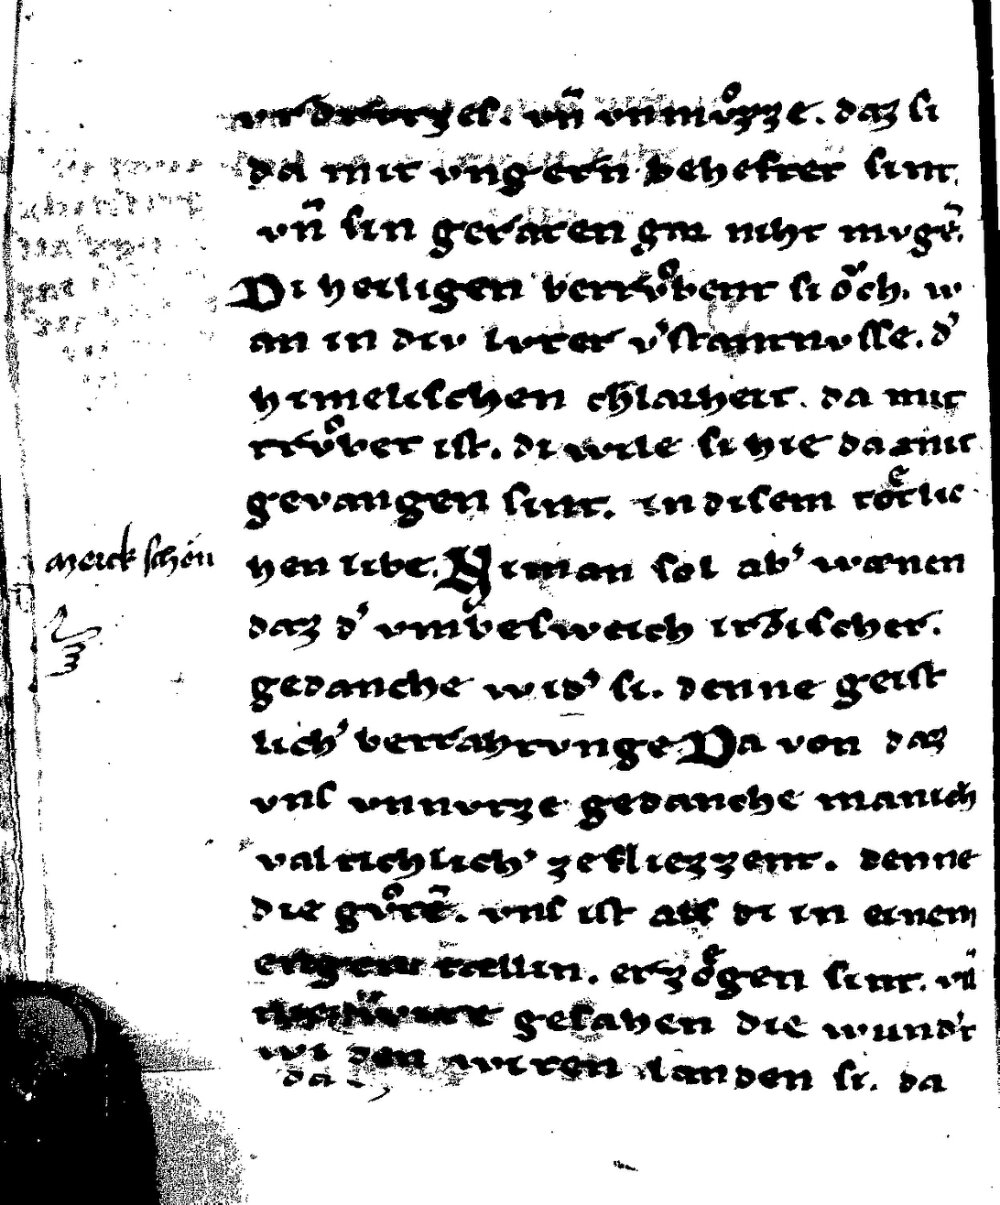 vrdrvtzel. vn̄ vnmůzze. daz si
da mit vngern beheftet sint
vn̄ sin geraten gar niht mvgē.
Di heiligen betrůbent si ǒch. w
an in div luter v'stantnvsse. d'
himelischen chlarheit. da mit
trůbet ist. di wile si hie da mit
gevangen sint. in disem totlic
Merck schön
hen libe. Niman sol ab' wænen
daz d' vmbesweich irdischer.
gedanche wid' si. denne geist
lich' betrahtvnge Da von daz
vns vnnvtze gedanche manich
valtichlich' zefliezzent. denne
die gůtē. vns ist als di in einem
engen tællin. erzogen sint. vn̄
gesahen die wund'r
wi den witen landen si. da